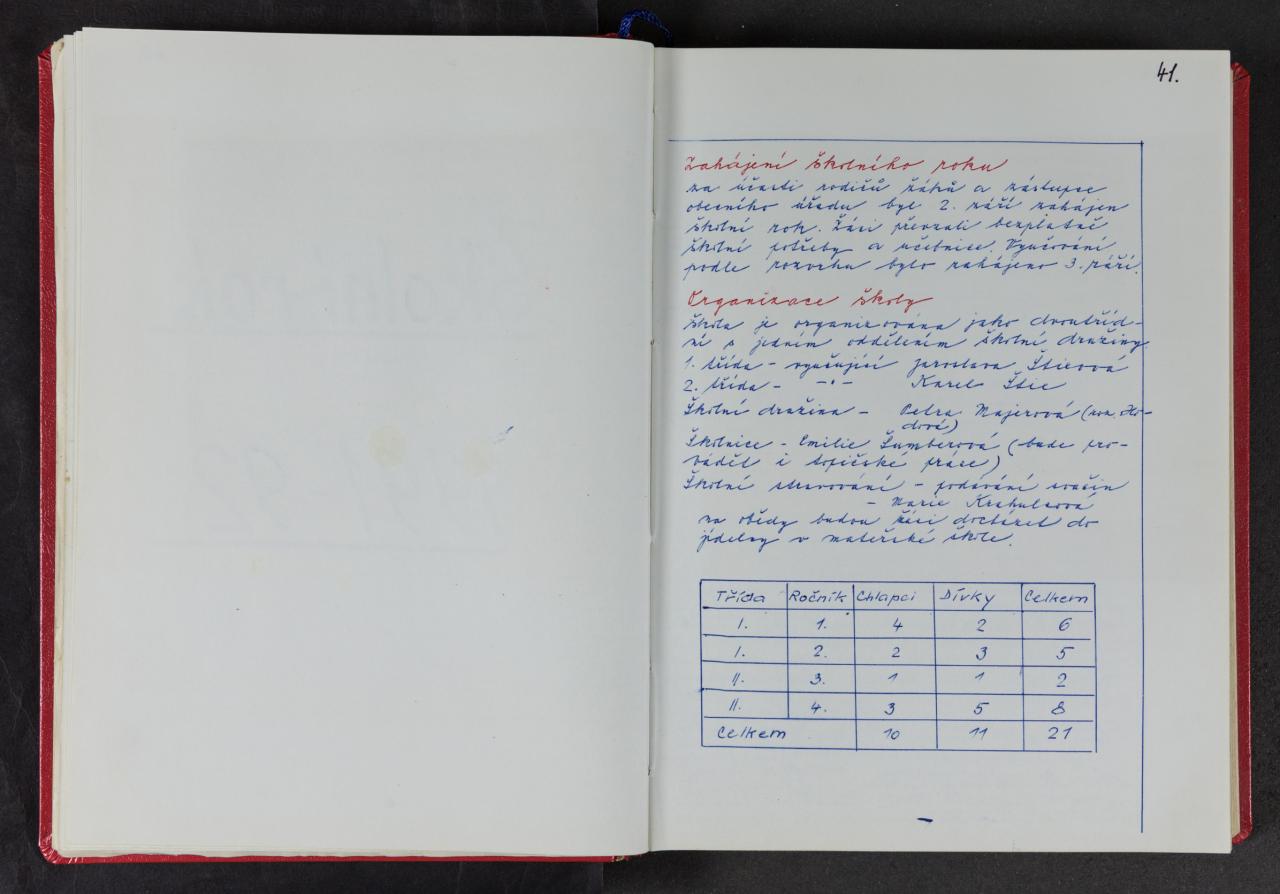 41.
Zahájení školního roku
za účasti rodičů žáků a zástupce
obecního úřadu byl 2. září zahájen
školní rok. Žáci převzali bezplatně
školní potřeby a učebnice. Vyučování
podle rozvrhu bylo zahájeno 3. září.
Organizace školy
Škola je organizována jako dvoutříd-
ní s jedním oddělením školní družiny
1. třída - vyučující Jaroslava Štieová
2. třída - -"- Karel Štie
Školní družina - Petra Majerová (roz. Ho-
dová)
Školnice - Emilie Šumberová (bude pro-
vádět i topičské práce)
Školní stravování - podávání svačin
- Marie Krahulcová
na obědy budou žáci docházet do
jídelny v mateřské škole.
Třída Ročník Chlapci Dívky Celkem
I. 1. 4 2 6
I. 2. 2 3 5
II. 3. 1 1 2
II. 4. 3 5 8
Celkem 10 11 21